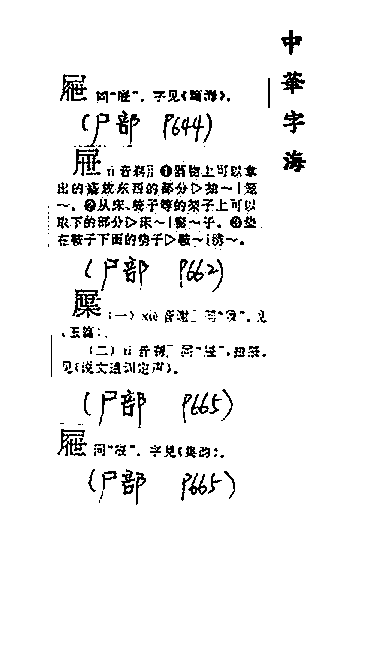 中華字海
同“屉”。字见《篇海》。
(尸部 P644)
屉 tì 音剃 ❶器物上可以拿
出的盛放东西的部分▷抽～|笼
～。❷从床、椅子等的架子上可以
取下的部分▷床～|～子。❸垫
在鞍子下面的垫子▷鞍～|～。
(尸部 P662)
(一) xiè 音谢 同“”。见
《玉篇》。
(二) tì 音剃 同“屉”。
见《说文通训定声》。
(尸部 P665)
同“”。字见《集韵》。
(尸部 P665)